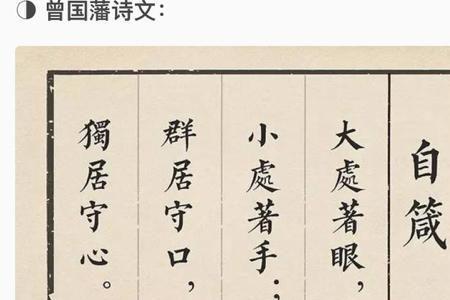 曾国藩诗文：
自箴
大處著眼，
小處著手；
群居守口，
獨居守心。